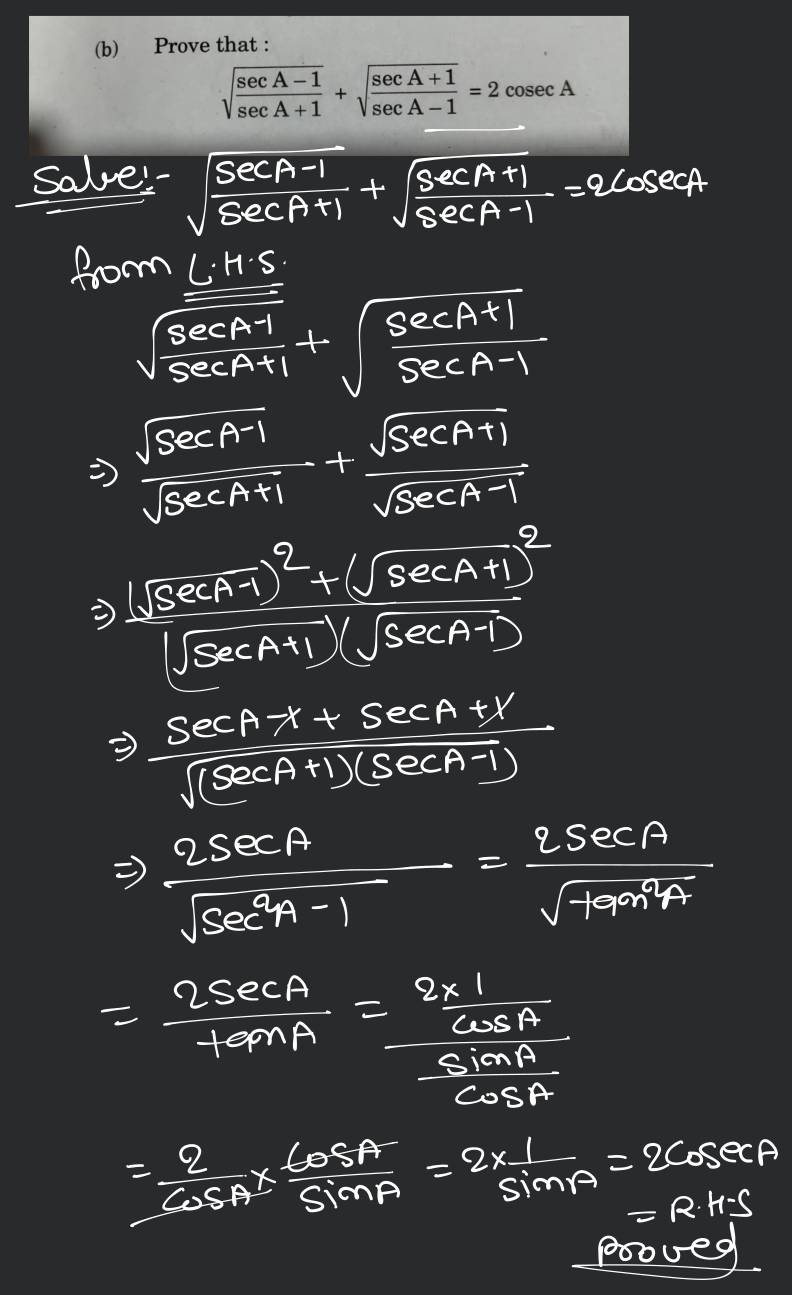 (b) Prove that :
√((sec A – 1)/(sec A + 1)) + √((sec A + 1)/(sec A – 1)) = 2 cosec A
Solve:- √((secA-1)/(secA+1)) + √((secA+1)/(secA-1)) = 2cosecA
from L.H.S.
√((secA-1)/(secA+1)) + √((secA+1)/(secA-1))
⇒ √(secA-1)/√(secA+1) + √(secA+1)/√(secA-1)
⇒ ((√(secA-1))² + (√(secA+1))²)/((√(secA+1))(√(secA-1)))
⇒ (secA-1 + secA+1)/√((secA+1)(secA-1))
⇒ 2secA/√(sec²A-1) = 2secA/√(tan²A)
= 2secA/tanA = (2×1/cosA)/(sinA/cosA)
= 2/cosA × cosA/sinA = 2×1/sinA = 2cosecA
= R.H.S
Proved